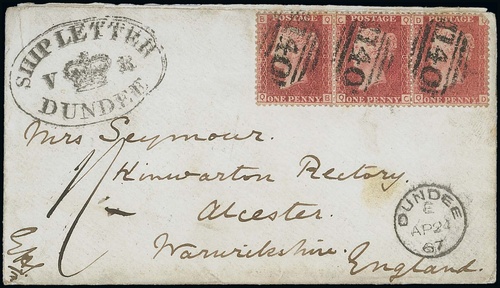 SHIP LETTER
V R
DUNDEE
B POSTAGE C
140
O ONE PENNY B
C POSTAGE O
140
O ONE PENNY C
D POSTAGE O
140
O ONE PENNY D
Mrs Seymour.
Kinwarton Rectory.
Alcester.
Warwickshire.
England.
DUNDEE
E
AP 24
67